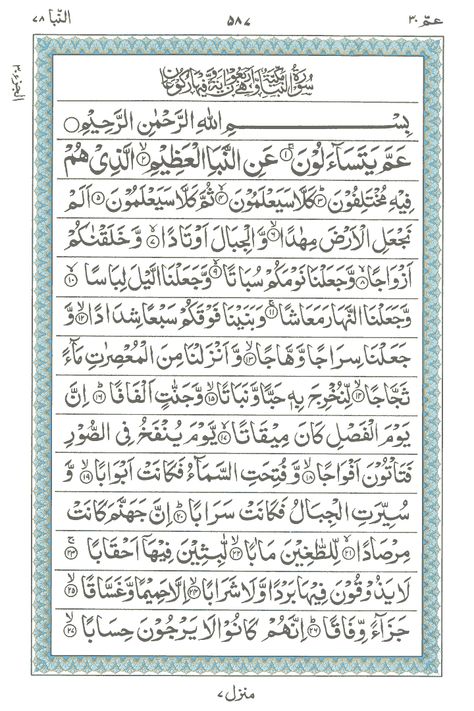 عمّ ٣٠
٥٨٧
النبا ٧٨
الجزء ٣٠
سورة النبا مكية وهى اربعون اية وفيها ركوعان
بِسْمِ اللهِ الرَّحْمٰنِ الرَّحِيْمِ
عَمَّ يَتَسَآءَلُوْنَ ۝١ عَنِ النَّبَاِ الْعَظِيْمِ ۝٢ الَّذِىْ هُمْ
فِيْهِ مُخْتَلِفُوْنَ ۝٣ كَلَّا سَيَعْلَمُوْنَ ۝٤ ثُمَّ كَلَّا سَيَعْلَمُوْنَ ۝٥ اَلَمْ
نَجْعَلِ الْاَرْضَ مِهٰدًا ۝٦ وَّالْجِبَالَ اَوْتَادًا ۝٧ وَّخَلَقْنٰكُمْ
اَزْوَاجًا ۝٨ وَّجَعَلْنَا نَوْمَكُمْ سُبَاتًا ۝٩ وَّجَعَلْنَا الَّيْلَ لِبَاسًا ۝١٠
وَّجَعَلْنَا النَّهَارَ مَعَاشًا ۝١١ وَّبَنَيْنَا فَوْقَكُمْ سَبْعًا شِدَادًا ۝١٢ وَّ
جَعَلْنَا سِرَاجًا وَّهَّاجًا ۝١٣ وَّاَنْزَلْنَا مِنَ الْمُعْصِرٰتِ مَآءً
ثَجَّاجًا ۝١٤ لِّنُخْرِجَ بِهٖ حَبًّا وَّنَبَاتًا ۝١٥ وَّجَنّٰتٍ اَلْفَافًا ۝١٦ اِنَّ
يَوْمَ الْفَصْلِ كَانَ مِيْقَاتًا ۝١٧ يَّوْمَ يُنْفَخُ فِى الصُّوْرِ
فَتَاْتُوْنَ اَفْوَاجًا ۝١٨ وَّفُتِحَتِ السَّمَآءُ فَكَانَتْ اَبْوَابًا ۝١٩ وَّ
سُيِّرَتِ الْجِبَالُ فَكَانَتْ سَرَابًا ۝٢٠ اِنَّ جَهَنَّمَ كَانَتْ
مِرْصَادًا ۝٢١ لِّلطّٰغِيْنَ مَاٰبًا ۝٢٢ لّٰبِثِيْنَ فِيْهَآ اَحْقَابًا ۝٢٣
لَا يَذُوْقُوْنَ فِيْهَا بَرْدًا وَّلَا شَرَابًا ۝٢٤ اِلَّا حَمِيْمًا وَّغَسَّاقًا ۝٢٥
جَزَآءً وِّفَاقًا ۝٢٦ اِنَّهُمْ كَانُوْا لَا يَرْجُوْنَ حِسَابًا ۝٢٧
منزل ٧